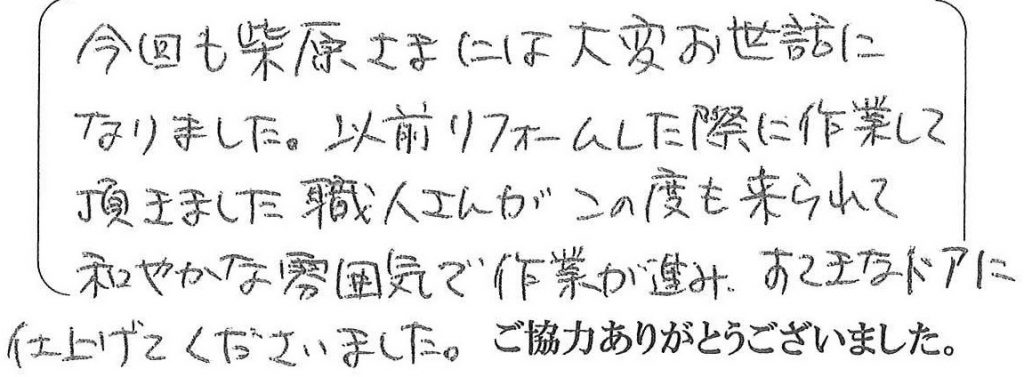 今回も柴原さまには大変お世話に
なりました。以前リフォームした際に作業して
頂きました職人さんがこの度も来られて
和やかな雰囲気で作業が進み、すてきなドアに
仕上げてくださいました。 ご協力ありがとうございました。